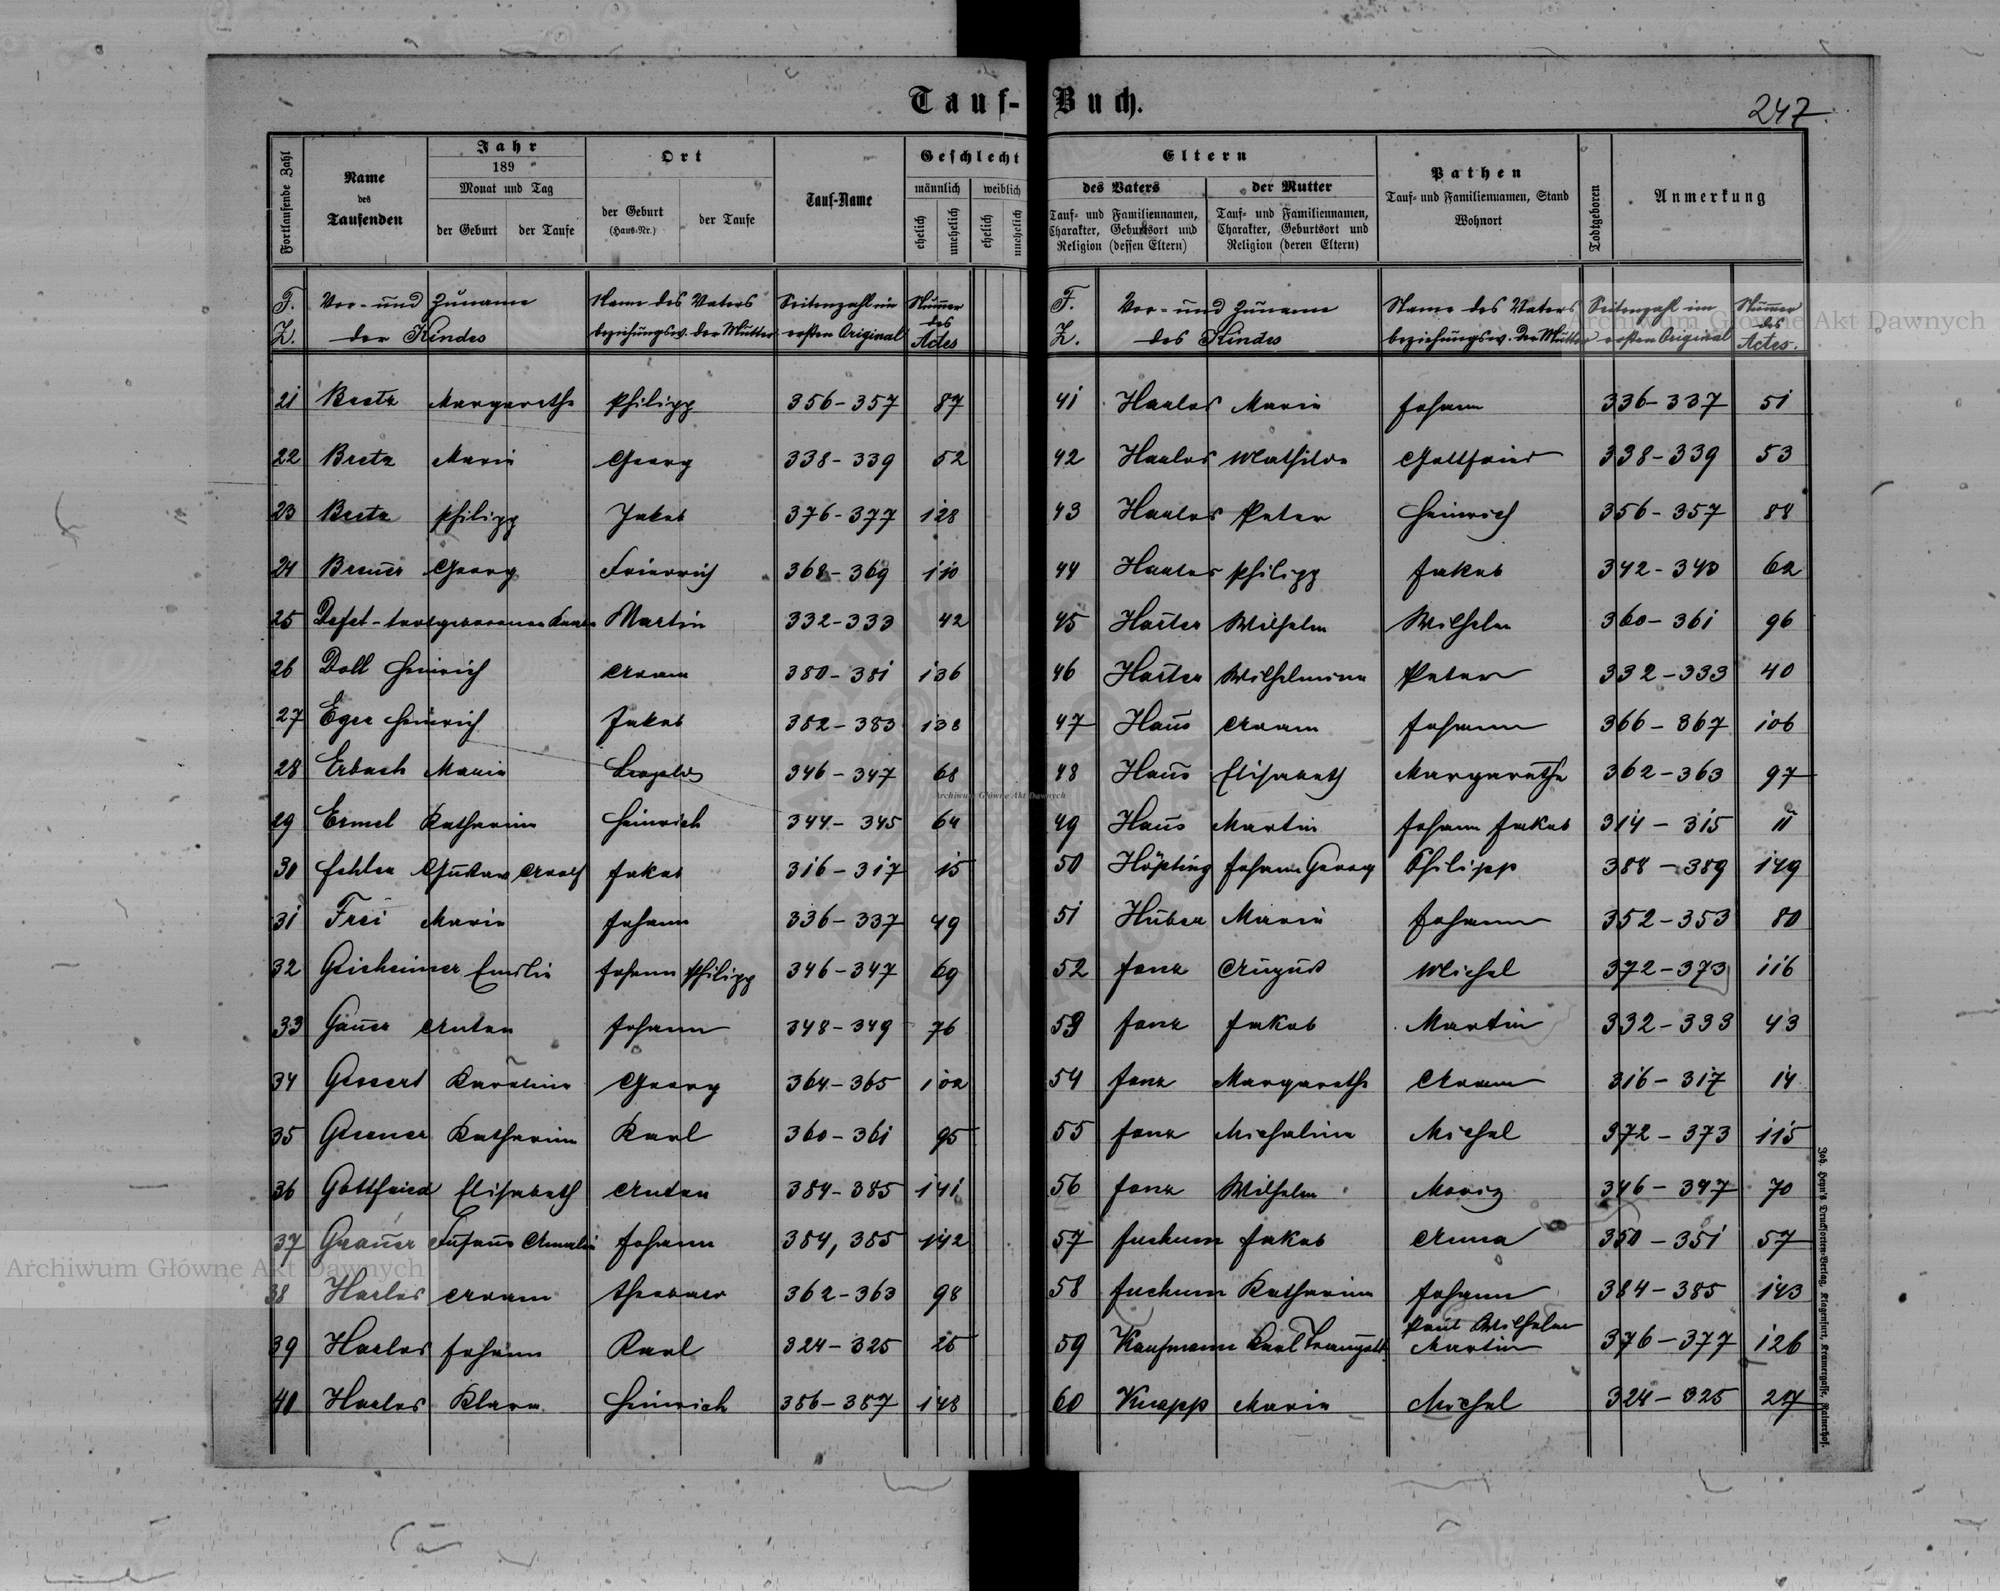 Tauf-Buch.
247.
Fortlaufende Zahl
Name
des
Taufenden
Jahr
189
Monat und Tag
der Geburt
der Taufe
Ort
der Geburt
(Haus-Nr.)
der Taufe
Tauf-Name
Geschlecht
männlich
weiblich
ehelich
unehelich
ehelich
unehelich
Eltern
des Vaters
der Mutter
Tauf- und Familiennamen,
Charakter, Geburtsort und
Religion (dessen Eltern)
Tauf- und Familiennamen,
Charakter, Geburtsort und
Religion (deren Eltern)
Pathen
Tauf- und Familiennamen, Stand
Wohnort
Todtgeboren
Anmerkung
F. Z.
Vor- und Zuname
des Kindes
Name des Vaters
beziehungsw. der Mutter
Seitenzahl im
ersten Original
Nummer
des
Actes
21 Bretz Margarethe Philipp 356-357 87
22 Bretz Maria Georg 338-339 52
23 Bretz Philipp Jakob 376-377 128
24 Breuer Georg Friedrich 368-369 110
25 Defet - todtgeborener Knabe Martin 332-333 42
26 Doll Heinrich Adam 380-381 136
27 Eger Heinrich Jakob 382-383 138
28 Erbach Maria Leopold 346-347 68
29 Ermel Katharina Heinrich 344-345 64
30 Fehler Gustav Adolf Jakob 316-317 15
31 Frei Maria Johann 336-337 49
32 Geisheimer Emilie Johann Philipp 346-347 69
33 Gauer Anton Johann 348-349 76
34 Karolina Georg 364-365 102
35 Katharina Karl 360-361 95
36 Gottfried Elisabeth Anton 384-385 141
37 Grauer Amalie Johann 384, 385 142
38 Harlos Adam Theobald 362-363 98
39 Harlos Johann Karl 324-325 25
40 Harlos Klara Heinrich 386-387 148
F. Z.
Vor- und Zuname
des Kindes
Name des Vaters
beziehungsw. der Mutter
Seitenzahl im
ersten Original
Nummer
des
Actes.
41 Harlos Maria Johann 336-337 51
42 Harlos Mathilde Gottfried 338-339 53
43 Harlos Peter Heinrich 356-357 88
44 Harlos Philipp Jakob 342-343 62
45 Harter Wilhelm Wilhelm 360-361 96
46 Harter Wilhelmine Peter 332-333 40
47 Haus Adam Johann 366-367 106
48 Haus Elisabeth Margarethe 362-363 97
49 Haus Martin Johann Jakob 314-315 11
50 Höpting Johann Georg Philipp 388-389 149
51 Huber Maria Johann 352-353 80
52 Janz August Michel 372-373 116
53 Janz Jakob Martin 332-333 43
54 Janz Margarethe Adam 316-317 14
55 Janz Michaline Michel 372-373 115
56 Janz Wilhelm Moriz 346-347 70
57 Juchum Jakob Anna 350-351 57
58 Juchum Katharina Johann 384-385 143
59 Kaufmann Karl Traugott Paul Wilhelm Martin 376-377 126
60 Knapp Maria Michel 324-325 27
Joh. Heyn's Drucksorten-Verlag, Klagenfurt, Kramergasse, Rainerhof.
Archiwum Główne Akt Dawnych
Archiwum Główne Akt Dawnych
Archiwum Główne Akt Dawnych